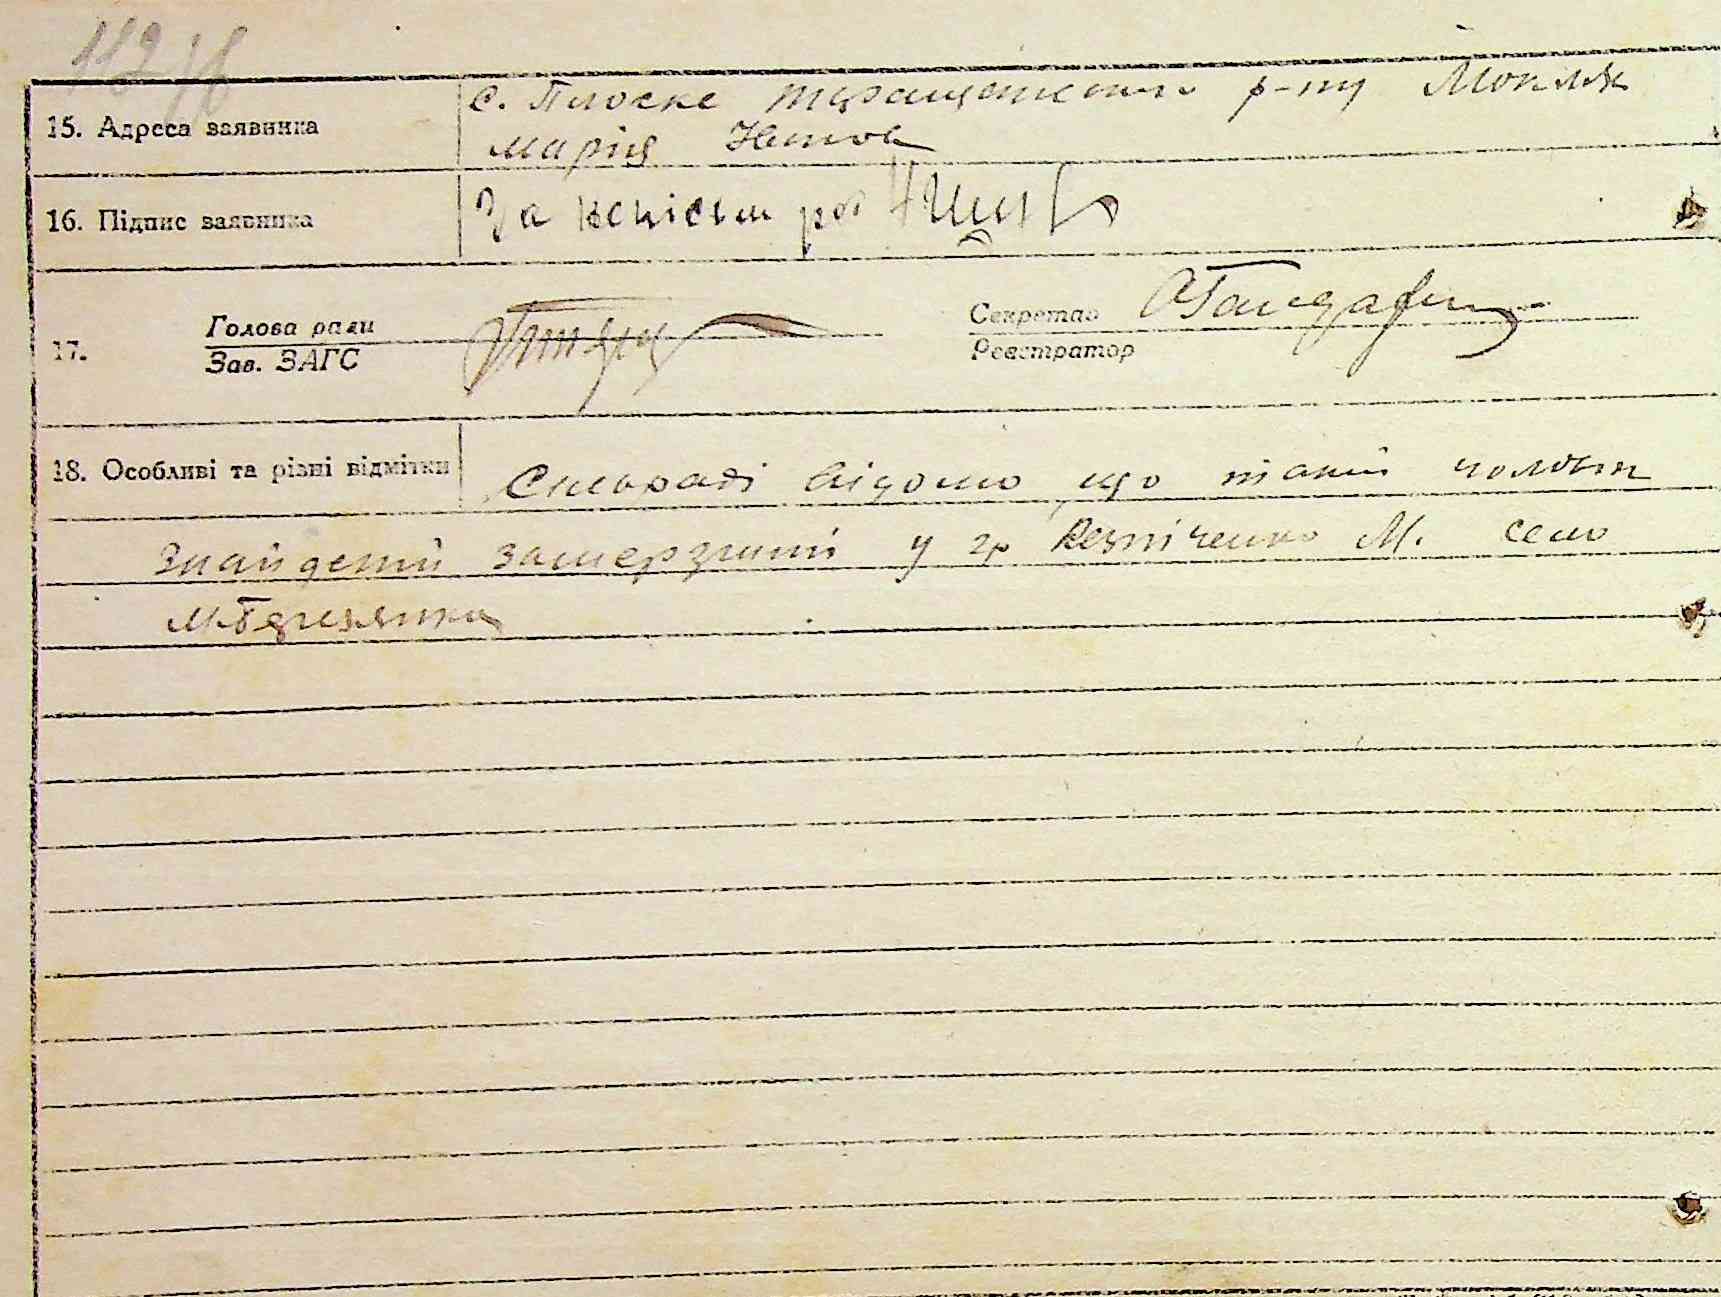 15. Адреса заявника
с. Плоске Таращанского р-ну Мокляк
Марія
16. Підпис заявника
За
17. Голова ради
Зав. ЗАГС
Секретар
Реєстратор
18. Особливі та різні відмітки
Сільраді відомо що такий чоловік
знайдений замерзший у гр Резніченко М. село
М-Березянка